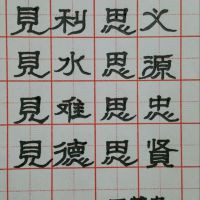 見利思义
見水思源
見难思忠
見德思賢